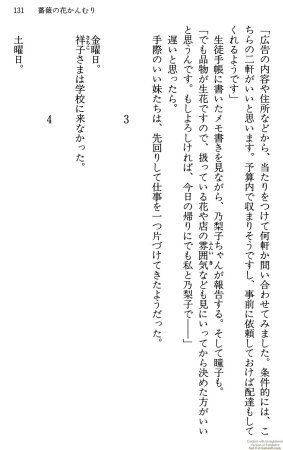 131　薔薇の花かんむり
「広告の内容や住所などから、当たりをつけて何軒か問い合わせてみました。条件的には、こ
ちらの二軒がいいと思います。予算内で収まりそうですし、事前に依頼しておけば配達もして
くれるようです」
生徒手帳に書いたメモ書きを見ながら、乃梨子ちゃんが報告する。そして瞳子も。
「でも品物が生花ですので、扱っている花や店の雰囲気なども見にいってから決めた方がいい
と思うんです。もしよろしければ、今日の帰りにでも私と乃梨子で――」
遅いと思ったら。
手際のいい妹たちは、先回りして仕事を一つ片づけてきたようだった。
3
金曜日。
祥子さまは学校に来なかった。
4
土曜日。